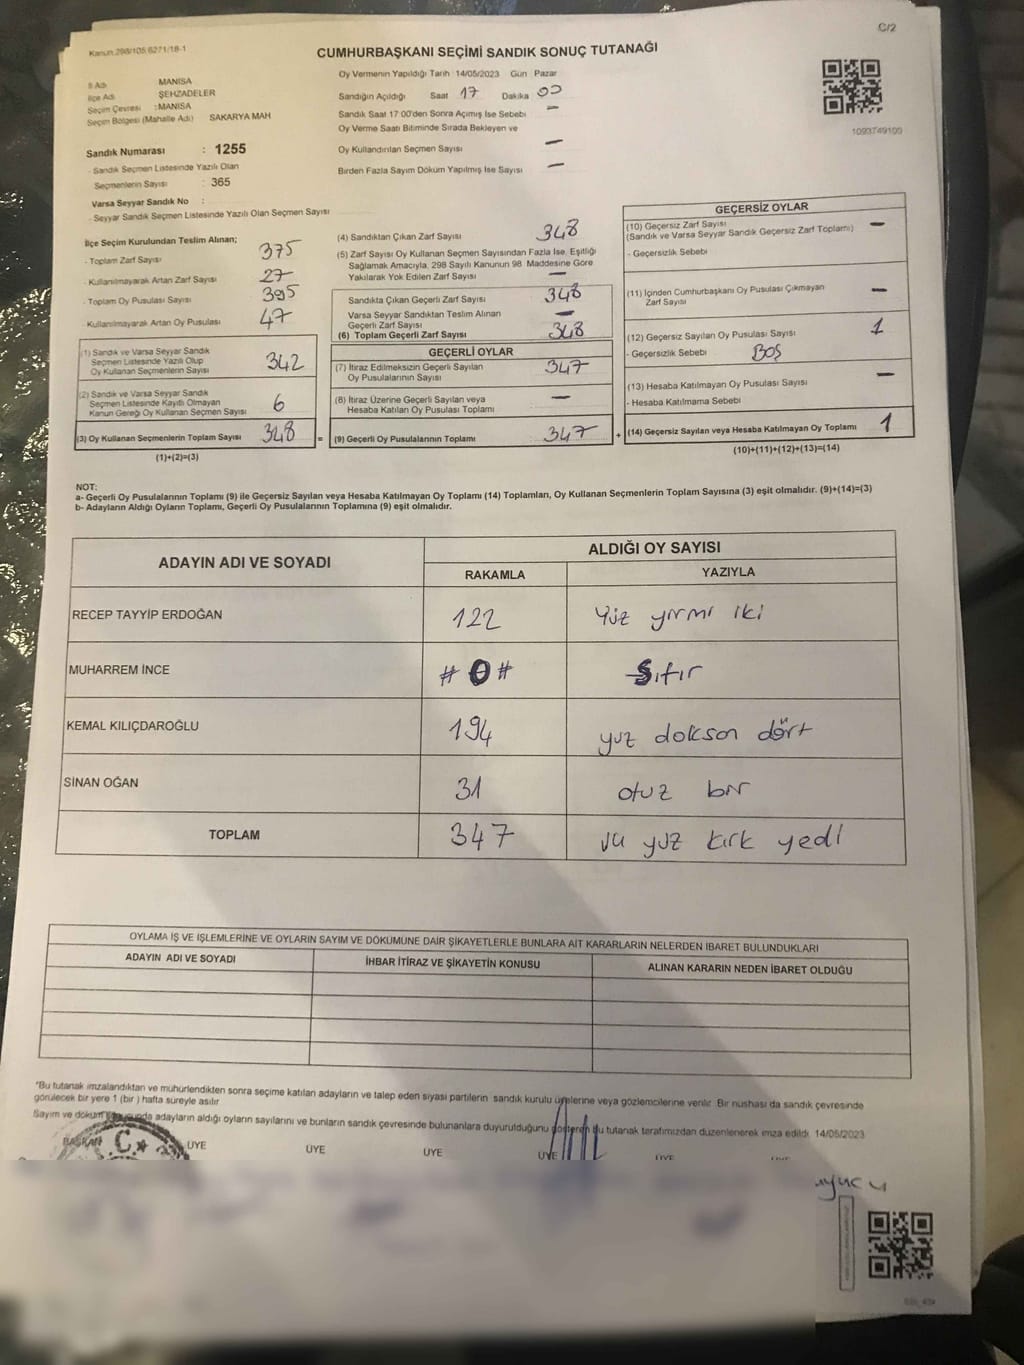 C/2
Kanun 298/105,6271/18-1
CUMHURBAŞKANI SEÇİMİ SANDIK SONUÇ TUTANAĞI
İl Adı MANİSA
İlçe Adı ŞEHZADELER
Seçim Çevresi : MANİSA
Seçim Bölgesi (Mahalle Adı) SAKARYA MAH
Sandık Numarası : 1255
- Sandık Seçmen Listesinde Yazılı Olan
Seçmenlerin Sayısı : 365
Varsa Seyyar Sandık No :
- Seyyar Sandık Seçmen Listesinde Yazılı Olan Seçmen Sayısı
Oy Vermenin Yapıldığı Tarih 14/05/2023 Gün Pazar
Sandığın Açıldığı Saat 17 Dakika 00
Sandık Saat 17:00'den Sonra Açımış İse Sebebi —
Oy Verme Saati Bitiminde Sırada Bekleyen ve
Oy Kullandırılan Seçmen Sayısı —
Birden Fazla Sayım Döküm Yapılmış İse Sayısı —
1093749100
İlçe Seçim Kurulundan Teslim Alınan;
- Toplam Zarf Sayısı 375
- Kullanılmayarak Artan Zarf Sayısı 27
- Toplam Oy Pusulası Sayısı 395
- Kullanılmayarak Artan Oy Pusulası 47
(1) Sandık ve Varsa Seyyar Sandık
Seçmen Listesinde Yazılı Olup
Oy Kullanan Seçmenlerin Sayısı 342
(2) Sandık ve Varsa Seyyar Sandık
Seçmen Listesinde Kayıtlı Olmayan
Kanun Gereği Oy Kullanan Seçmen Sayısı 6
(3) Oy Kullanan Seçmenlerin Toplam Sayısı 348 =
(1)+(2)=(3)
(4) Sandıktan Çıkan Zarf Sayısı 348
(5) Zarf Sayısı Oy Kullanan Seçmen Sayısından Fazla İse, Eşitliği
Sağlamak Amacıyla, 298 Sayılı Kanunun 98. Maddesine Göre
Yakılarak Yok Edilen Zarf Sayısı —
Sandıkta Çıkan Geçerli Zarf Sayısı 348
Varsa Seyyar Sandıktan Teslim Alınan
Geçerli Zarf Sayısı —
(6) Toplam Geçerli Zarf Sayısı 348
GEÇERLİ OYLAR
(7) İtiraz Edilmeksizin Geçerli Sayılan
Oy Pusulalarının Sayısı 347
(8) İtiraz Üzerine Geçerli Sayılan veya
Hesaba Katılan Oy Pusulası Toplamı —
(9) Geçerli Oy Pusulalarının Toplamı 347 +
GEÇERSİZ OYLAR
(10) Geçersiz Zarf Sayısı —
(Sandık ve Varsa Seyyar Sandık Geçersiz Zarf Toplamı)
- Geçersizlik Sebebi
(11) İçinden Cumhurbaşkanı Oy Pusulası Çıkmayan
Zarf Sayısı —
(12) Geçersiz Sayılan Oy Pusulası Sayısı 1
- Geçersizlik Sebebi BOŞ
(13) Hesaba Katılmayan Oy Pusulası Sayısı —
- Hesaba Katılmama Sebebi
(14) Geçersiz Sayılan veya Hesaba Katılmayan Oy Toplamı 1
(10)+(11)+(12)+(13)=(14)
NOT:
a- Geçerli Oy Pusulalarının Toplamı (9) ile Geçersiz Sayılan veya Hesaba Katılmayan Oy Toplamı (14) Toplamları, Oy Kullanan Seçmenlerin Toplam Sayısına (3) eşit olmalıdır. (9)+(14)=(3)
b- Adayların Aldığı Oyların Toplamı, Geçerli Oy Pusulalarının Toplamına (9) eşit olmalıdır.
ADAYIN ADI VE SOYADI ALDIĞI OY SAYISI
RAKAMLA YAZIYLA
RECEP TAYYİP ERDOĞAN 122 Yüz yirmi iki
MUHARREM İNCE # 0 # Sıfır
KEMAL KILIÇDAROĞLU 194 yuz dokson dört
SİNAN OĞAN 31 otuz bir
TOPLAM 347 yuz kırk yedi
OYLAMA İŞ VE İŞLEMLERİNE VE OYLARIN SAYIM VE DÖKÜMÜNE DAİR ŞİKAYETLERLE BUNLARA AİT KARARLARIN NELERDEN İBARET BULUNDUKLARI
ADAYIN ADI VE SOYADI İHBAR İTİRAZ VE ŞİKAYETİN KONUSU ALINAN KARARIN NEDEN İBARET OLDUĞU
"Bu tutanak imzalandıktan ve mühürlendikten sonra seçime katılan adayların ve talep eden siyasi partilerin sandık kurulu üyelerine veya gözlemcilerine verilir. Bir nüshası da sandık çevresinde
görülecek bir yere 1 (bir) hafta süreyle asılır.
Sayım ve döküm adayların aldığı oyların sayılarını ve bunların sandık çevresinde bulunanlara duyurulduğunu gösteren bu tutanak terafımızdan düzenlenerek imza edildi. 14/05/2023
BAŞKAN ÜYE ÜYE ÜYE ÜYE ÜYE